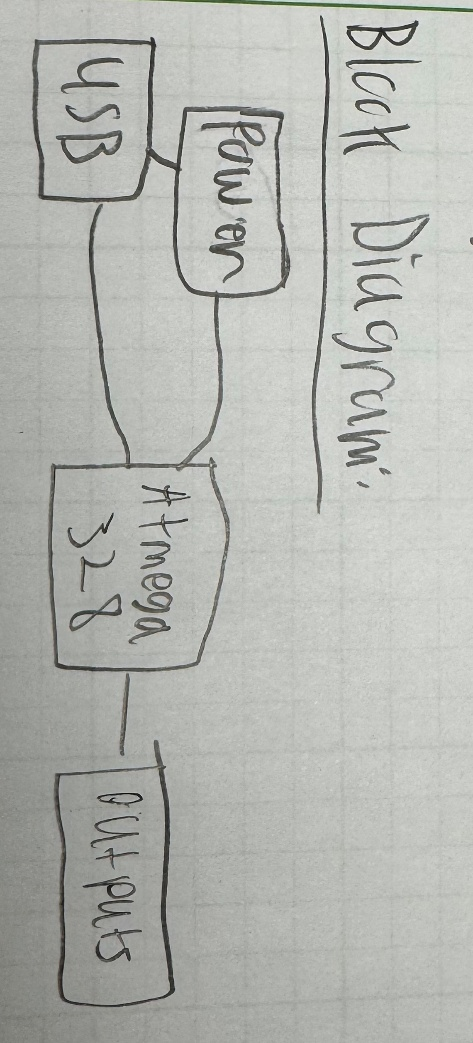 Block Diagram:
Power
USB
Atmega
328
outputs